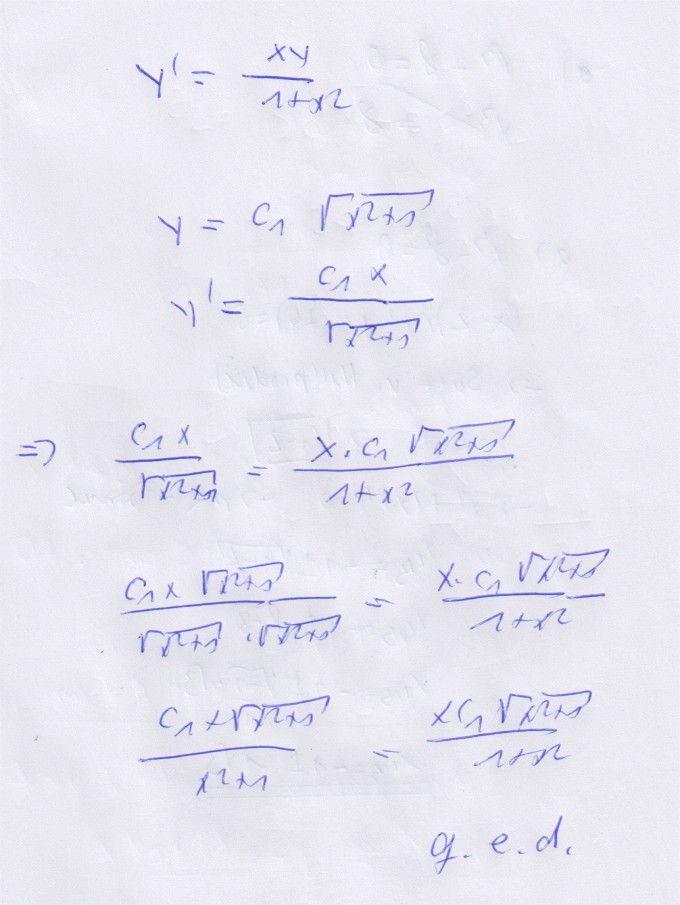 y' = xy / 1+x²
y = c₁ √(x²+1)
y' = c₁ x / √(x²+1)
=> c₁ x / √(x²+1) = x · c₁ √(x²+1) / 1+x²
c₁ x √(x²+1) / √(x²+1) · √(x²+1) = x · c₁ √(x²+1) / 1+x²
c₁ x √(x²+1) / x²+1 = x c₁ √(x²+1) / 1+x²
q. e. d.